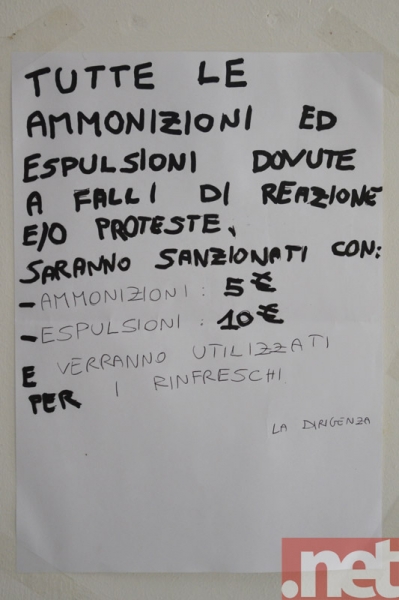 TUTTE LE
AMMONIZIONI ED
ESPULSIONI DOVUTE
A FALLI DI REAZIONE
E/O PROTESTE,
SARANNO SANZIONATI CON:
- AMMONIZIONI: 5€
- ESPULSIONI: 10€
E VERRANNO UTILIZZATI
PER I RINFRESCHI
LA DIRIGENZA
.net